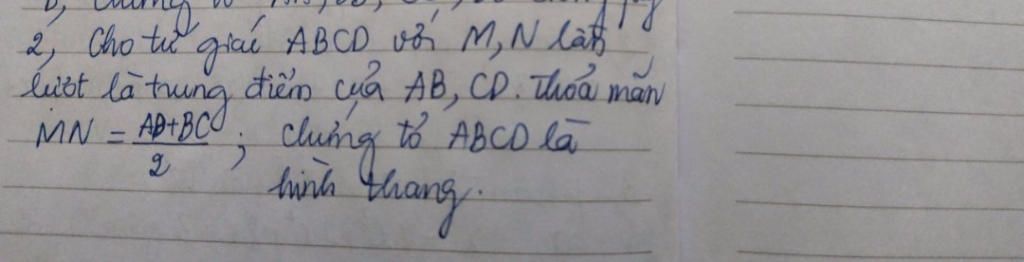 2, Cho tứ giác ABCD với M, N lần
lượt là trung điểm của AB, CD. Thoả mãn
MN = \frac{AD+BC}{2} ; Chứng tỏ ABCD là
hình thang.